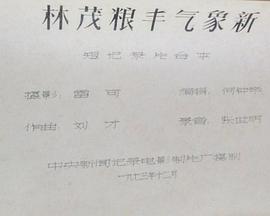 林茂粮丰气象新
短记录片台本
摄影：雷可 编辑：何钟辛
作曲：刘才 录音：张世明
中央新闻记录电影制片厂摄制
一九七三年十二月